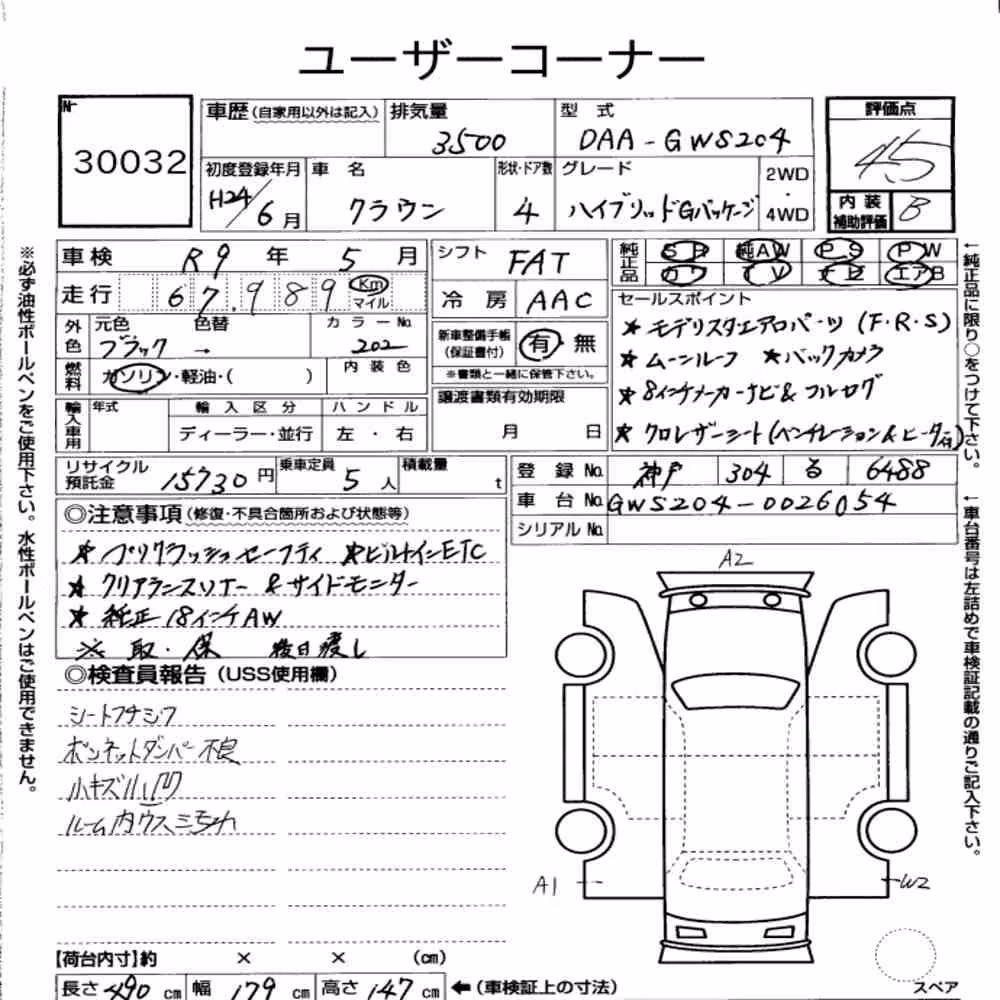 ユーザーコーナー
No.
30032
車歴(自家用以外は記入) 排気量 3500 型式 DAA-GWS204
評価点 4.5
初度登録年月 H24/6月 車名 クラウン 形状・ドア数 4 グレード ハイブリッドGパッケージ 2WD・4WD
内装補助評価 B
車検 R9年 5月
シフト FAT
純正品 SR 純AW P.S PW
カワ TV ナビ エアB
走行 67,989 Km マイル
冷房 AAC
セールスポイント
外色 元色 ブラック 色替 → カラーNo. 202
新車整備手帳(保証書付) 有・無
※書類と一緒に保管下さい。
★モデリスタエアロパーツ(F・R・S)
★ムーンルーフ ★バックカメラ
燃料 ガソリン・軽油・( ) 内装色
★8インチメーカーナビ&フルセグ
輸入車用 年式 輸入区分 ディーラー・並行 ハンドル 左・右
譲渡書類有効期限 月 日
★クロレザーシート(ベンチレーション&ヒーター付)
リサイクル預託金 15730円 乗車定員 5人 積載量 t
登録No. 神戸 304 る 6488
車台No. GWS204-0026054
シリアルNo.
◎注意事項(修復・不具合箇所および状態等)
★プリクラッシュセーフティ ★ビルトインETC
★クリアランスソナー&サイドモニター
★純正18インチAW
※取・保 後日渡し
◎検査員報告(USS使用欄)
シートフナシワ
ボンネットダンパー不良
小キズ小凹
ルーム内ウスミ汚れ
A2
A1
W2
スペア
【荷台内寸】約 × × (cm)
長さ 490 cm 幅 179 cm 高さ 147 cm ←(車検証上の寸法)
※必ず油性ボールペンをご使用下さい。水性ボールペンはご使用できません。
←純正品に限り○をつけて下さい。
←車台番号は左詰めで車検証記載の通りご記入下さい。